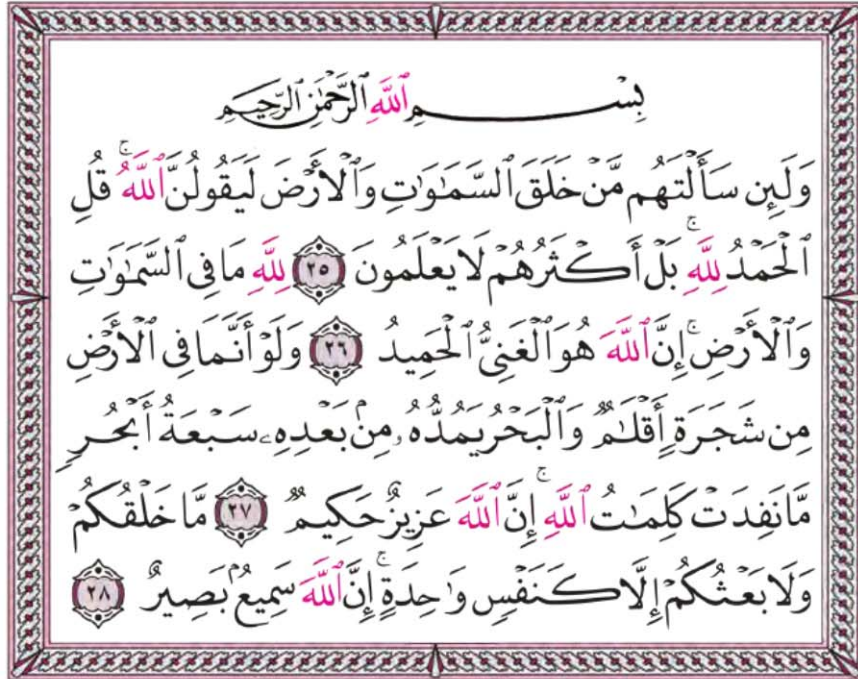 بِسْمِ ٱللَّهِ ٱلرَّحْمَٰنِ ٱلرَّحِيمِ
وَلَئِن سَأَلْتَهُم مَّنْ خَلَقَ ٱلسَّمَٰوَٰتِ وَٱلْأَرْضَ لَيَقُولُنَّ ٱللَّهُ ۚ قُلِ
ٱلْحَمْدُ لِلَّهِ ۚ بَلْ أَكْثَرُهُمْ لَا يَعْلَمُونَ ٢٥ لِلَّهِ مَا فِى ٱلسَّمَٰوَٰتِ
وَٱلْأَرْضِ ۚ إِنَّ ٱللَّهَ هُوَ ٱلْغَنِىُّ ٱلْحَمِيدُ ٢٦ وَلَوْ أَنَّمَا فِى ٱلْأَرْضِ
مِن شَجَرَةٍ أَقْلَٰمٌ وَٱلْبَحْرُ يَمُدُّهُۥ مِنۢ بَعْدِهِۦ سَبْعَةُ أَبْحُرٍ
مَّا نَفِدَتْ كَلِمَٰتُ ٱللَّهِ ۚ إِنَّ ٱللَّهَ عَزِيزٌ حَكِيمٌ ٢٧ مَّا خَلْقُكُمْ
وَلَا بَعْثُكُمْ إِلَّا كَنَفْسٍ وَٰحِدَةٍ ۚ إِنَّ ٱللَّهَ سَمِيعٌۢ بَصِيرٌ ٢٨